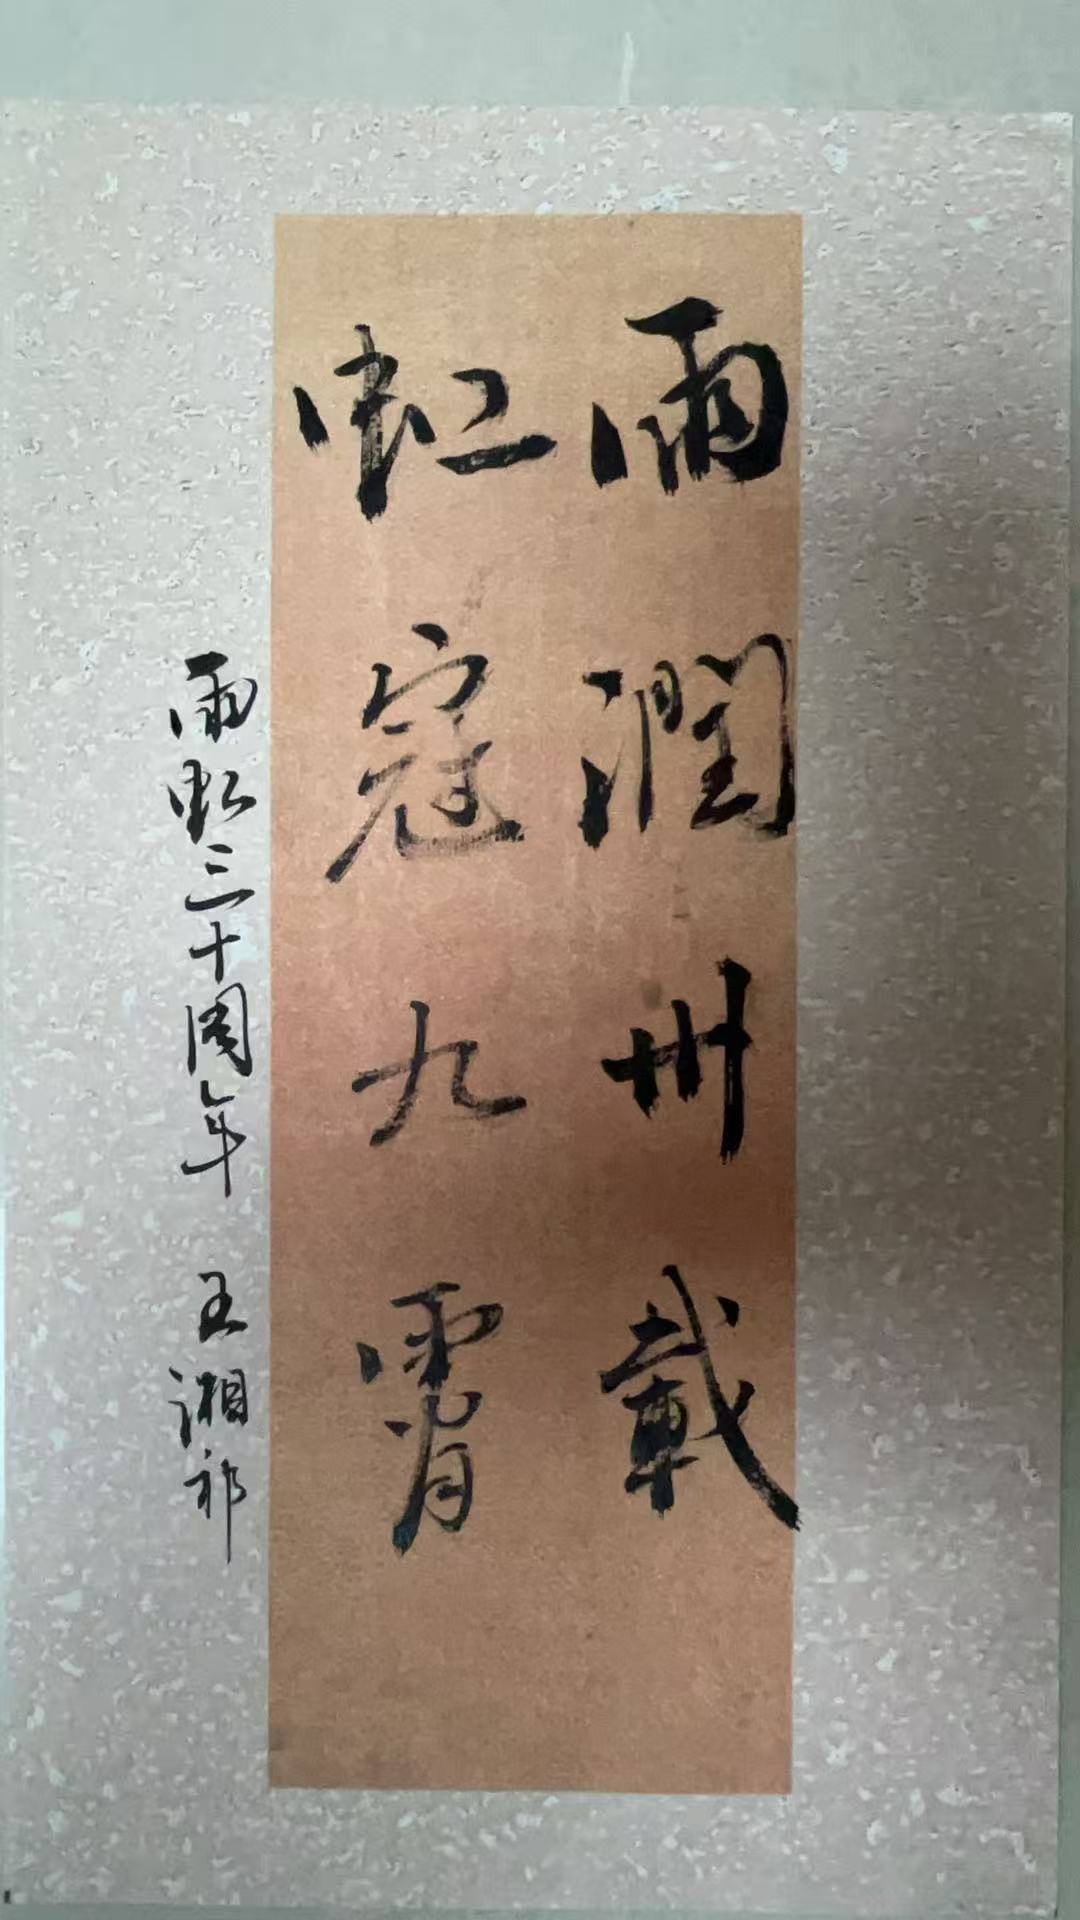 雨潤卅載
虹冠九霄
雨虹三十周年 王湘祁